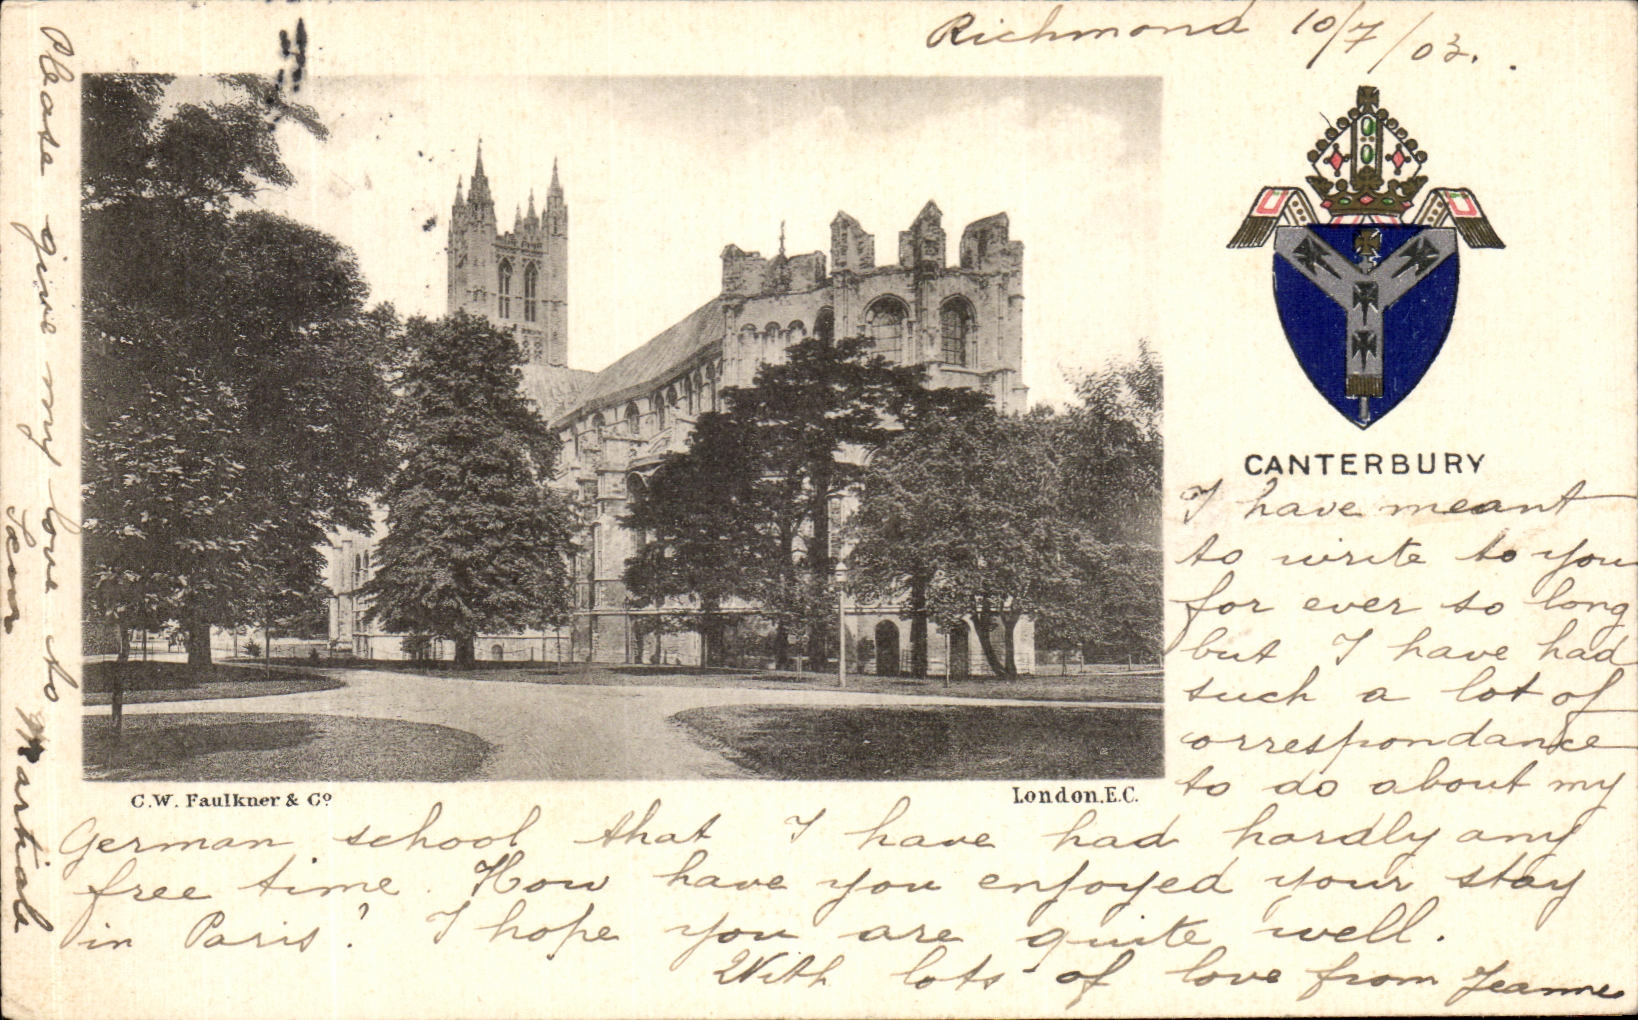 Richmond 10/7/03.
CANTERBURY
I have meant
to write to you
for ever so long
but I have had
such a lot of
correspondance
to do about my
C.W. Faulkner & Co
London, E.C.
German school that I have had hardly any
free time. How have you enjoyed your stay
in Paris? I hope you are quite well.
With lots of love from Jeanne
Please give my love to
Martiale